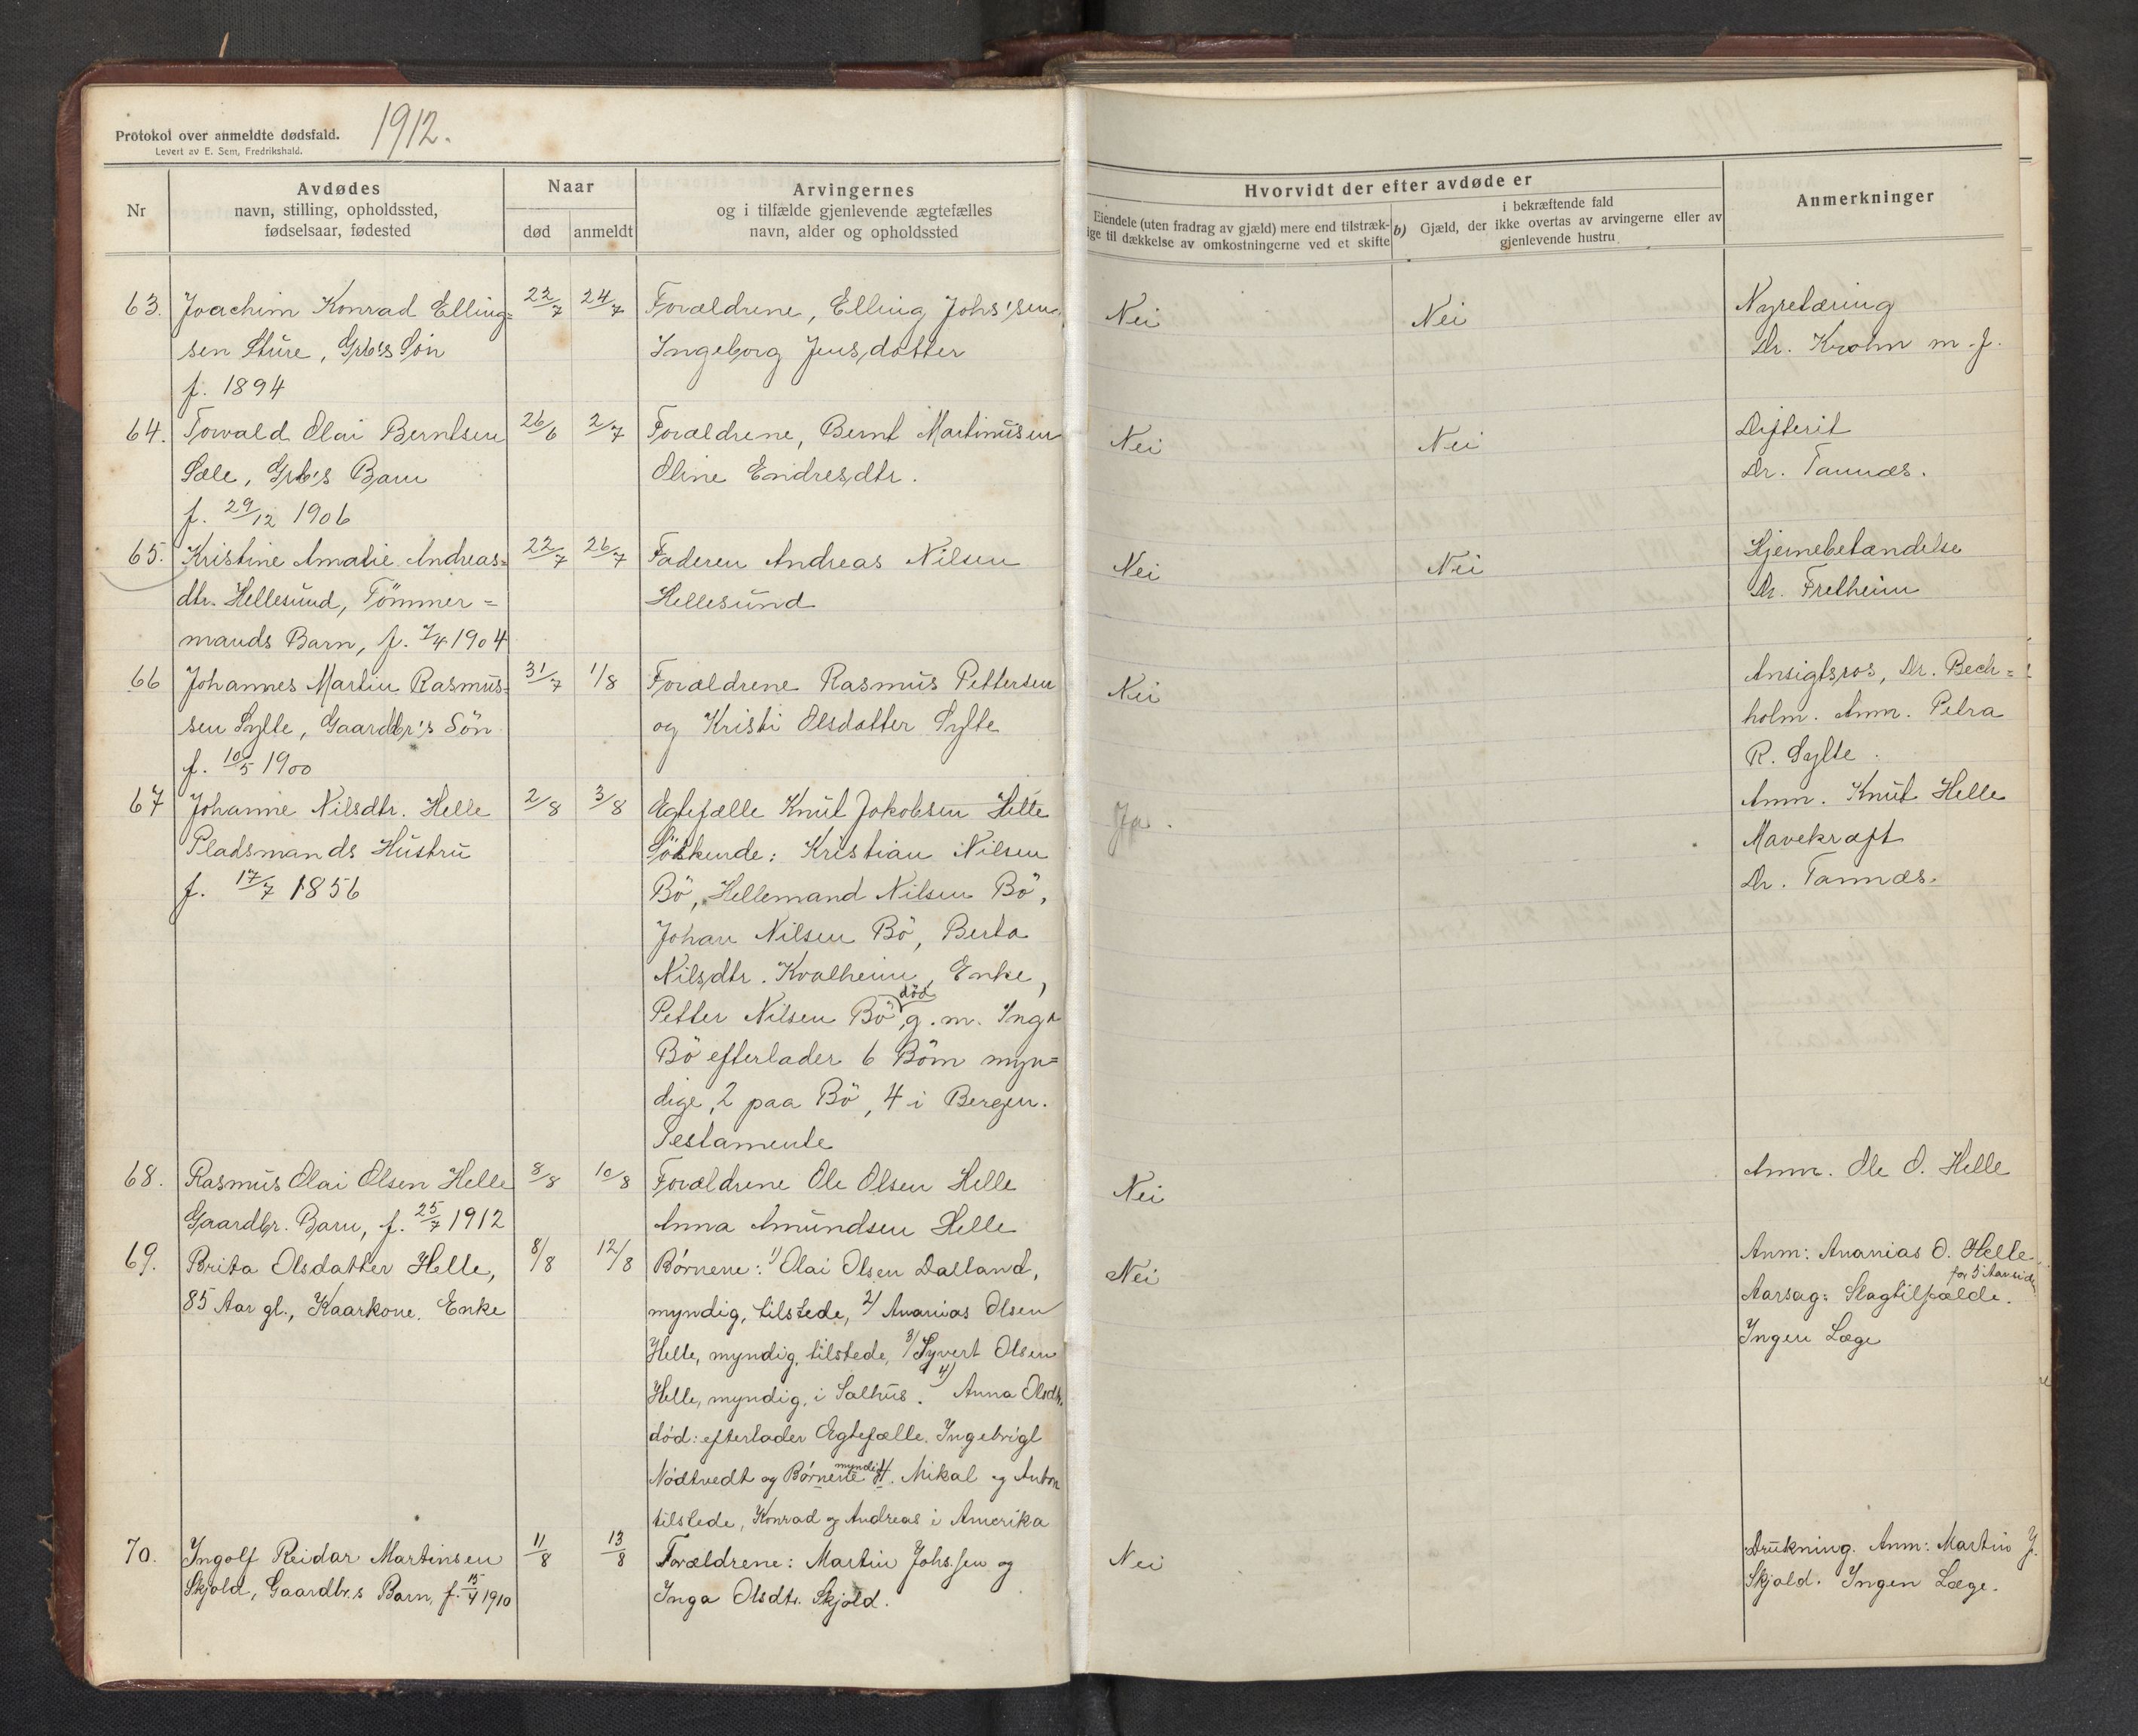 Protokol over anmeldte dødsfald.
Levert av E. Sem, Fredrikshald.
1912.
Nr
Avdødes
navn, stilling, opholdssted,
fødselsaar, fødested
Naar
død
anmeldt
Arvingernes
og i tilfælde gjenlevende ægtefælles
navn, alder og opholdssted
Hvorvidt der efter avdøde er
Eiendele (uten fradrag av gjæld) mere end tilstræk-
ige til dækkelse av omkostningerne ved et skifte
i bekræftende fald
b) Gjæld, der ikke overtas av arvingerne eller av
gjenlevende hustru
Anmerkninger
63.
Joachim Konrad Elling=
sen Sture, Grb's Søn
f. 1894
22/7
24/7
Forældrene, Elling Johs'sen,
Ingeborg Jensdatter
Nei
Nei
Nyretæring
Dr. Krohn m. f.
64.
Torvald Olai Berntsen
Sæle, Grb's Barn
f. 29/12 1906
26/6
2/7
Forældrene, Bernt Martinusen
Oline Endresdtr.
Nei
Nei
Difterit
Dr. Tannæs.
65.
Kristine Amalie Andreas=
dtr. Hellesund, Tömmer=
mands Barn, f. 7/4 1904
22/7
26/7
Faderen Andreas Nilsen
Hellesund
Nei
Nei
Hjernebetændelse
Dr. Fretheim
66
Johannes Martin Rasmus=
sen Sylte, Gaardbr's Sön
f. 10/5 1900
31/7
1/8
Forældrene Rasmus Pettersen
og Kristi Olsdatter Sylte
Nei
Ansigtsros, Dr. Bech=
holm. Anm. Petra
R. Sylte.
67
Johanne Nilsdtr. Helle
Pladsmands Hustru
f. 17/7 1856
2/8
3/8
Egtefælle Knut Jakobsen Helle
Söskende: Kristian Nilsen
Bö, Hellemand Nilsen Bö,
Johan Nilsen Bö, Berta
Nilsdtr. Kvalheim, Enke,
Petter Nilsen Bö død, g. m. Inga
Bö efterlader 6 Börn myn=
dige, 2 paa Bö, 4 i Bergen.
Testamente
Ja.
Anm. Knut Helle
Mavekræft
Dr. Tannæs.
68.
Rasmus Olai Olsen Helle
Gaardbr. Barn, f. 25/7 1912
8/8
10/8
Forældrene Ole Olsen Helle
Anna Amundsen Helle
Nei
Anm. Ole O. Helle
69.
Brita Olsdatter Helle,
85 Aar gl., Kaarkone. Enke
8/8
12/8
Børnene: 1/ Olai Olsen Dalland,
myndig, tilstede, 2/ Ananias Olsen
Helle, myndig, tilstede, 3/ Syvert Olsen
Helle, myndig, i Salhus. 4) Anna Olsdtr.
død: efterlader Egtefælle. Ingebrigt
Nødtvedt og Børnene myndig 4. Mikal og Anton
tilstede, Konrad og Andreas i Amerika
Nei
Anm: Ananias O. Helle.
for 5 Aar siden
Aarsag: Slagtilfælde.
Ingen Læge
70.
Ingolf Reidar Martinsen
Skjold, Gaardbr.s Barn, f. 15/4 1910
11/8
13/8
Forældrene: Martin Johs.sen og
Inga Olsdtr. Skjold.
Nei
Drukning. Anm: Martin J.
Skjold. Ingen Læge.